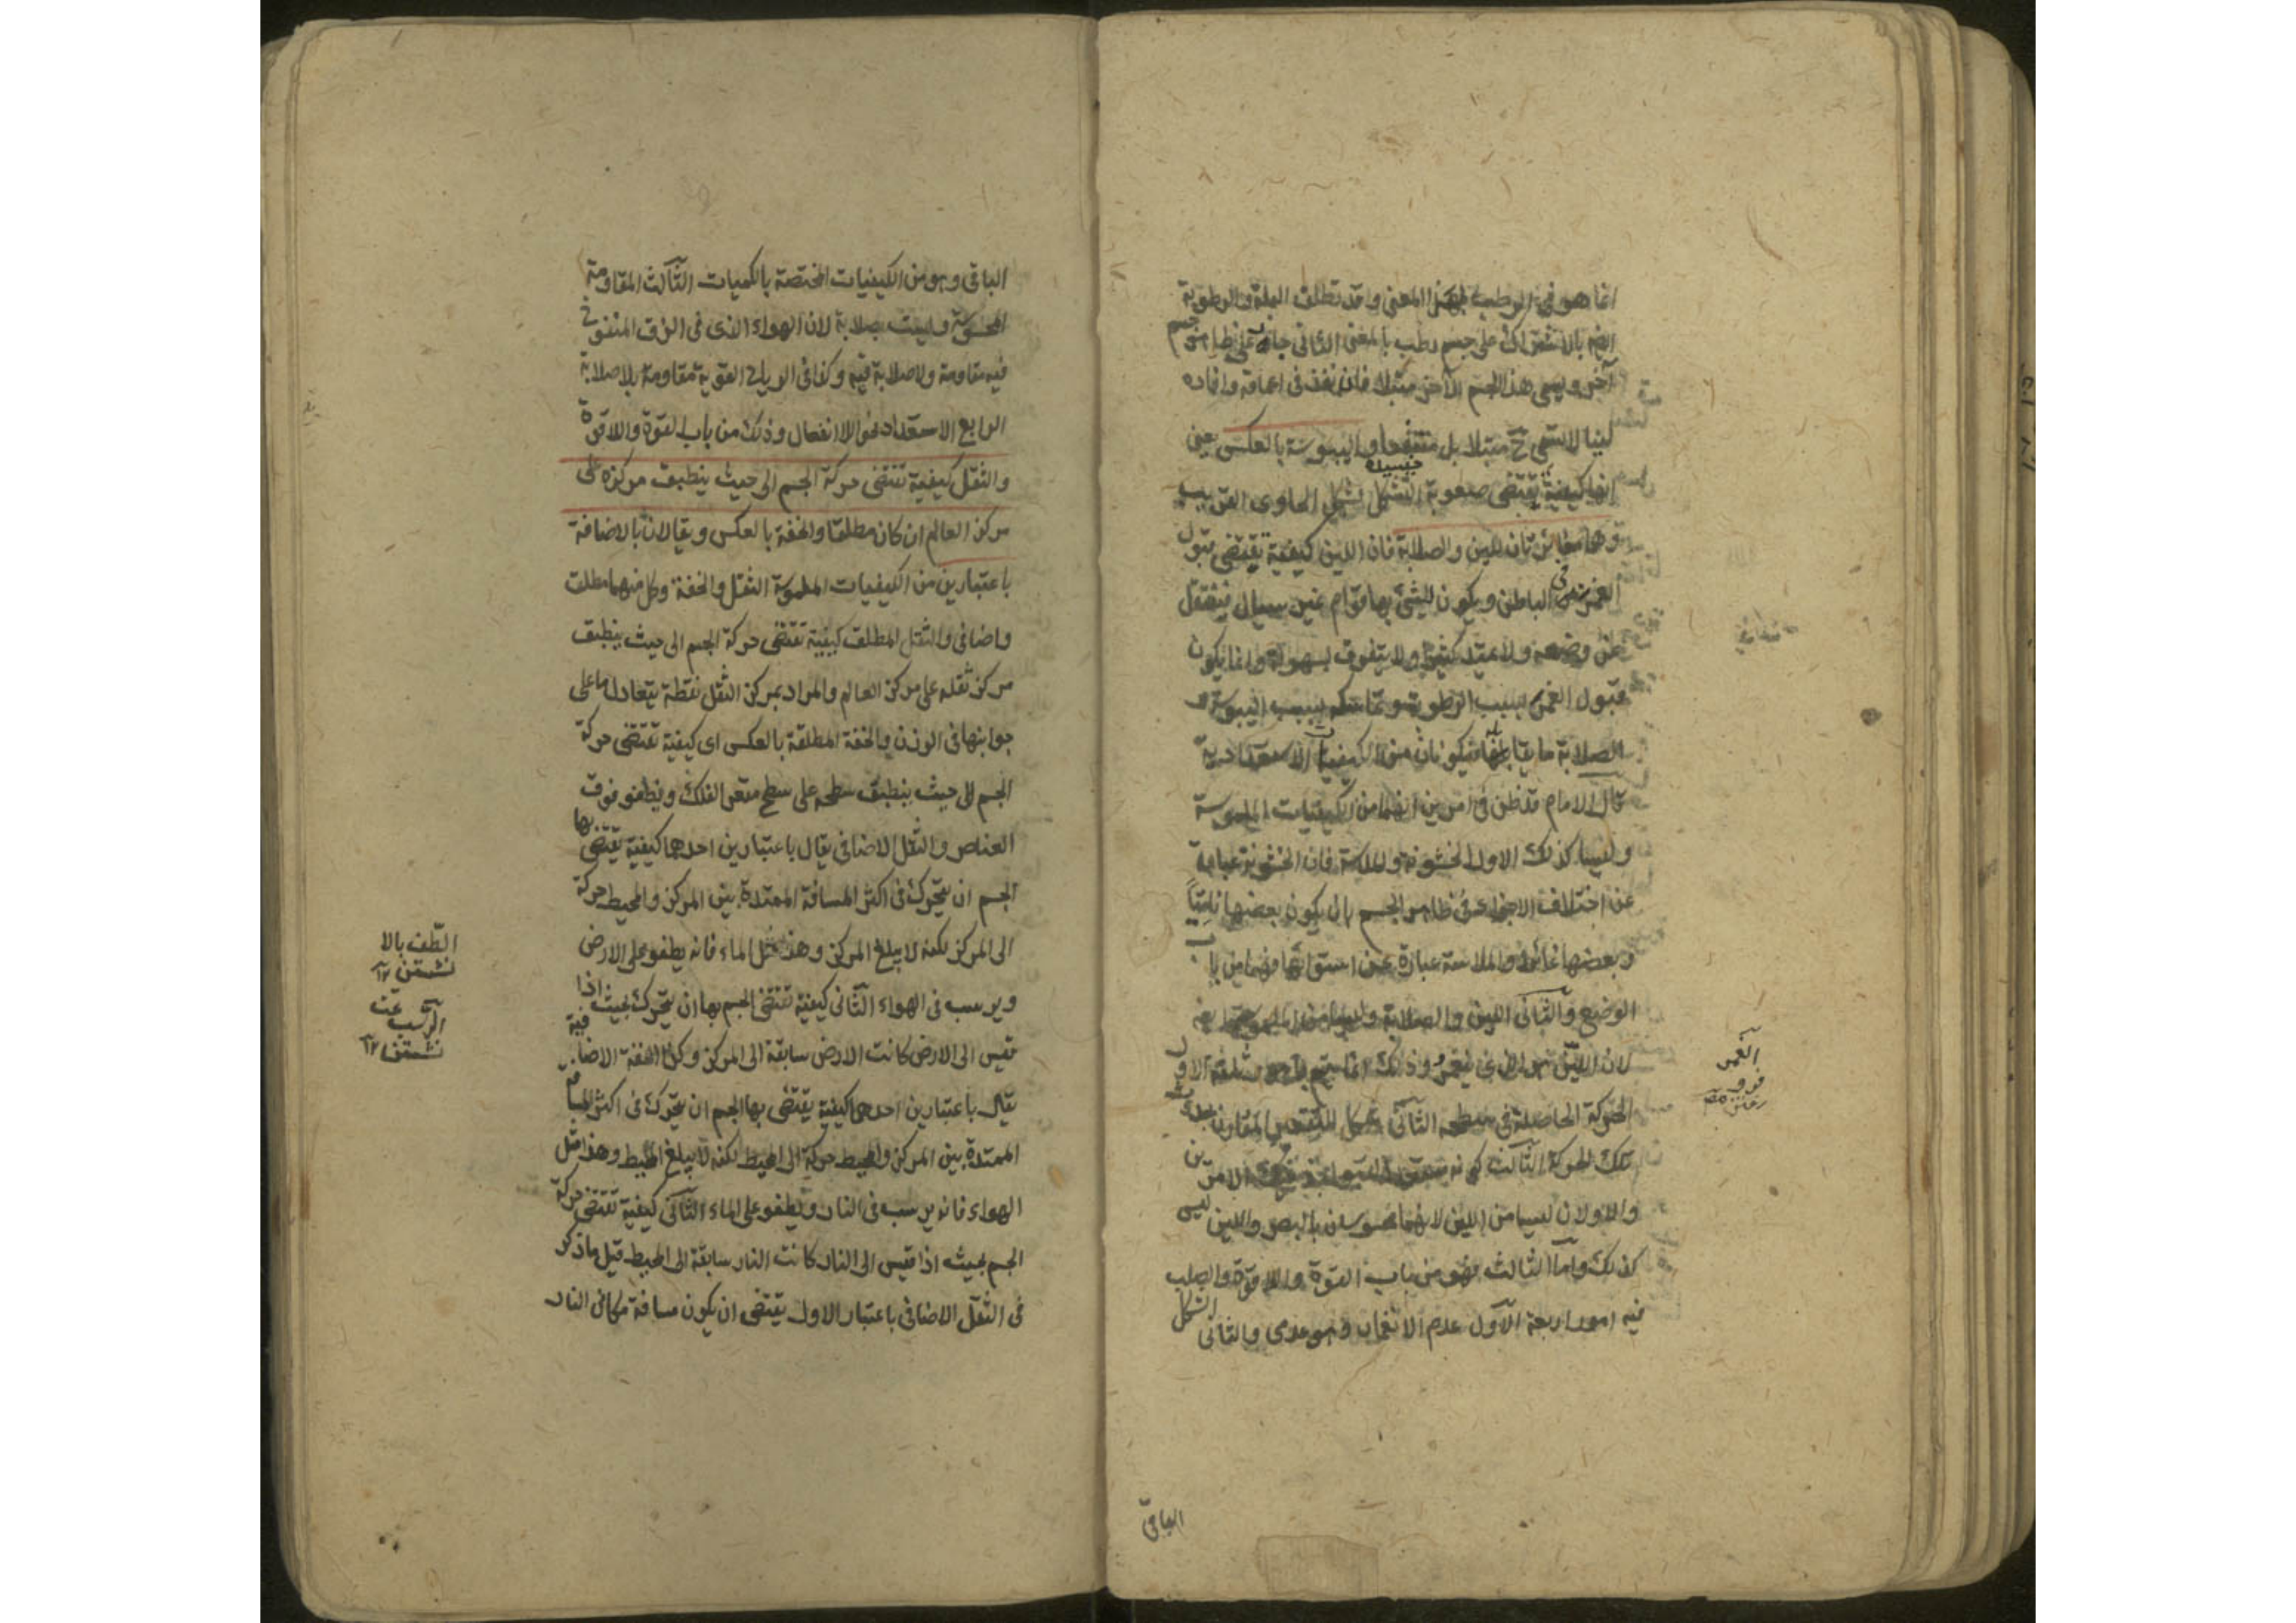 انما هو في الرطب بهذا المعنى وقد تطلق البلة والرطوبة
ايضا بالاشتراك على جسم رطب بالمعنى الثاني جار على ظاهر جسم
آخر ويسمى هذا الجسم الآخر مبتلا فان نفذ في اعماقه وافاده
لينا لا يسمى ح مبتلا بل منتفعا واليبوسة بالعكس يعني
انها كيفية تقتضي صعوبة التشكل بشكل الحاوى القريب
وهما مغايرتان للين والصلابة فان اللين كيفية تقتضي قبول
الغمز في الباطن ويكون للشئ بها قوام غير سيال فينتقل
عن وضعه ولا يمتد كثيرا ولا يتفرق بسهولة وانما يكون
قبول الغمز بسبب الرطوبة وتماسكه بسبب اليبوسة و
الصلابة ما يقابلها فيكونان من الكيفيات الاستعدادية
قال الامام قد ظن في امرين انهما من الكيفيات الملموسة
وليسا كذلك الاول الخشونة والملاسة فان الخشونة عبارة
عن اختلاف الاجزاء في ظاهر الجسم بان يكون بعضها ناتيا
وبعضها غائرا والملاسة عبارة عن استوائها فهما من باب
الوضع والثاني اللين والصلابة وليسا
لان اللين هو الذي ينغمز وذلك انما يتم بامور ثلثة الاول
الحركة الحاصلة في سطحه الثاني شكل التقعير المقارن لحدوث
تلك الحركة الثالث كونه الامرين
والاولان ليسا من اللين لانهما محسوسان بالبصر واللين ليس
كذلك واما الثالث فهو من باب القوة واللاقوة والصلب
فيه امور اربعة الاول عدم الانغماز وهو عدمى والثاني الشكل
الباقي
الغمز
الباقي وهو من الكيفيات المختصة بالكميات الثالث المقاومة
المحسوسة وليست بصلابة لان الهواء الذى فى الزق المنفوخ
فيه مقاومة ولا صلابة فيه وكذا في الرياح القوية مقاومة بلا صلابة
الرابع الاستعداد نحو الاانفعال وذلك من باب القوة واللاقوة
والثقل كيفية تقتضى حركة الجسم الى حيث ينطبق مركزه على
مركز العالم ان كان مطلقا والخفة بالعكس ويقالان بالاضافة
باعتبارين من الكيفيات الملموسة الثقل والخفة وكل منهما مطلق
واضافى والثقل المطلق كيفية تقتضى حركة الجسم الى حيث ينطبق
مركز ثقله على مركز العالم والمراد بمركز الثقل نقطة يتعادل ما على
جوانبها فى الوزن والخفة المطلقة بالعكس اى كيفية تقتضى حركة
الجسم الى حيث ينطبق سطحه على سطح مقعر الفلك ويطفو فوق
العناصر والثقل الاضافى يقال باعتبارين احدهما كيفية يقتضى بها
الجسم ان يتحرك فى اكثر المسافة الممتدة بين المركز والمحيط حركة
الى المركز لكنه لا يبلغ المركز وهذا مثل الماء فانه يطفو على الارض
ويرسب فى الهواء الثانى كيفية تقتضى الجسم بها ان يتحرك بحيث اذا
قيس الى الارض كانت الارض سابقة الى المركز وكذا الخفة الاضافية
يقال باعتبارين احدهما كيفية يقتضى بها الجسم ان يتحرك فى اكثر المسافة
الممتدة بين المركز والمحيط حركة الى المحيط لكنه لا يبلغ المحيط وهذا مثل
الهواء فانه يرسب فى النار ويطفو على الماء الثانى كيفية تقتضى حركة
الجسم بحيث اذا قيس الى النار كانت النار سابقة الى المحيط قيل ما ذكر
فى الثقل الاضافى باعتبار الاول يقتضى ان يكون مسافة مكانى النار
الطف بالا
نشستن ١٢
الرسب تحت
نشستن ١٢